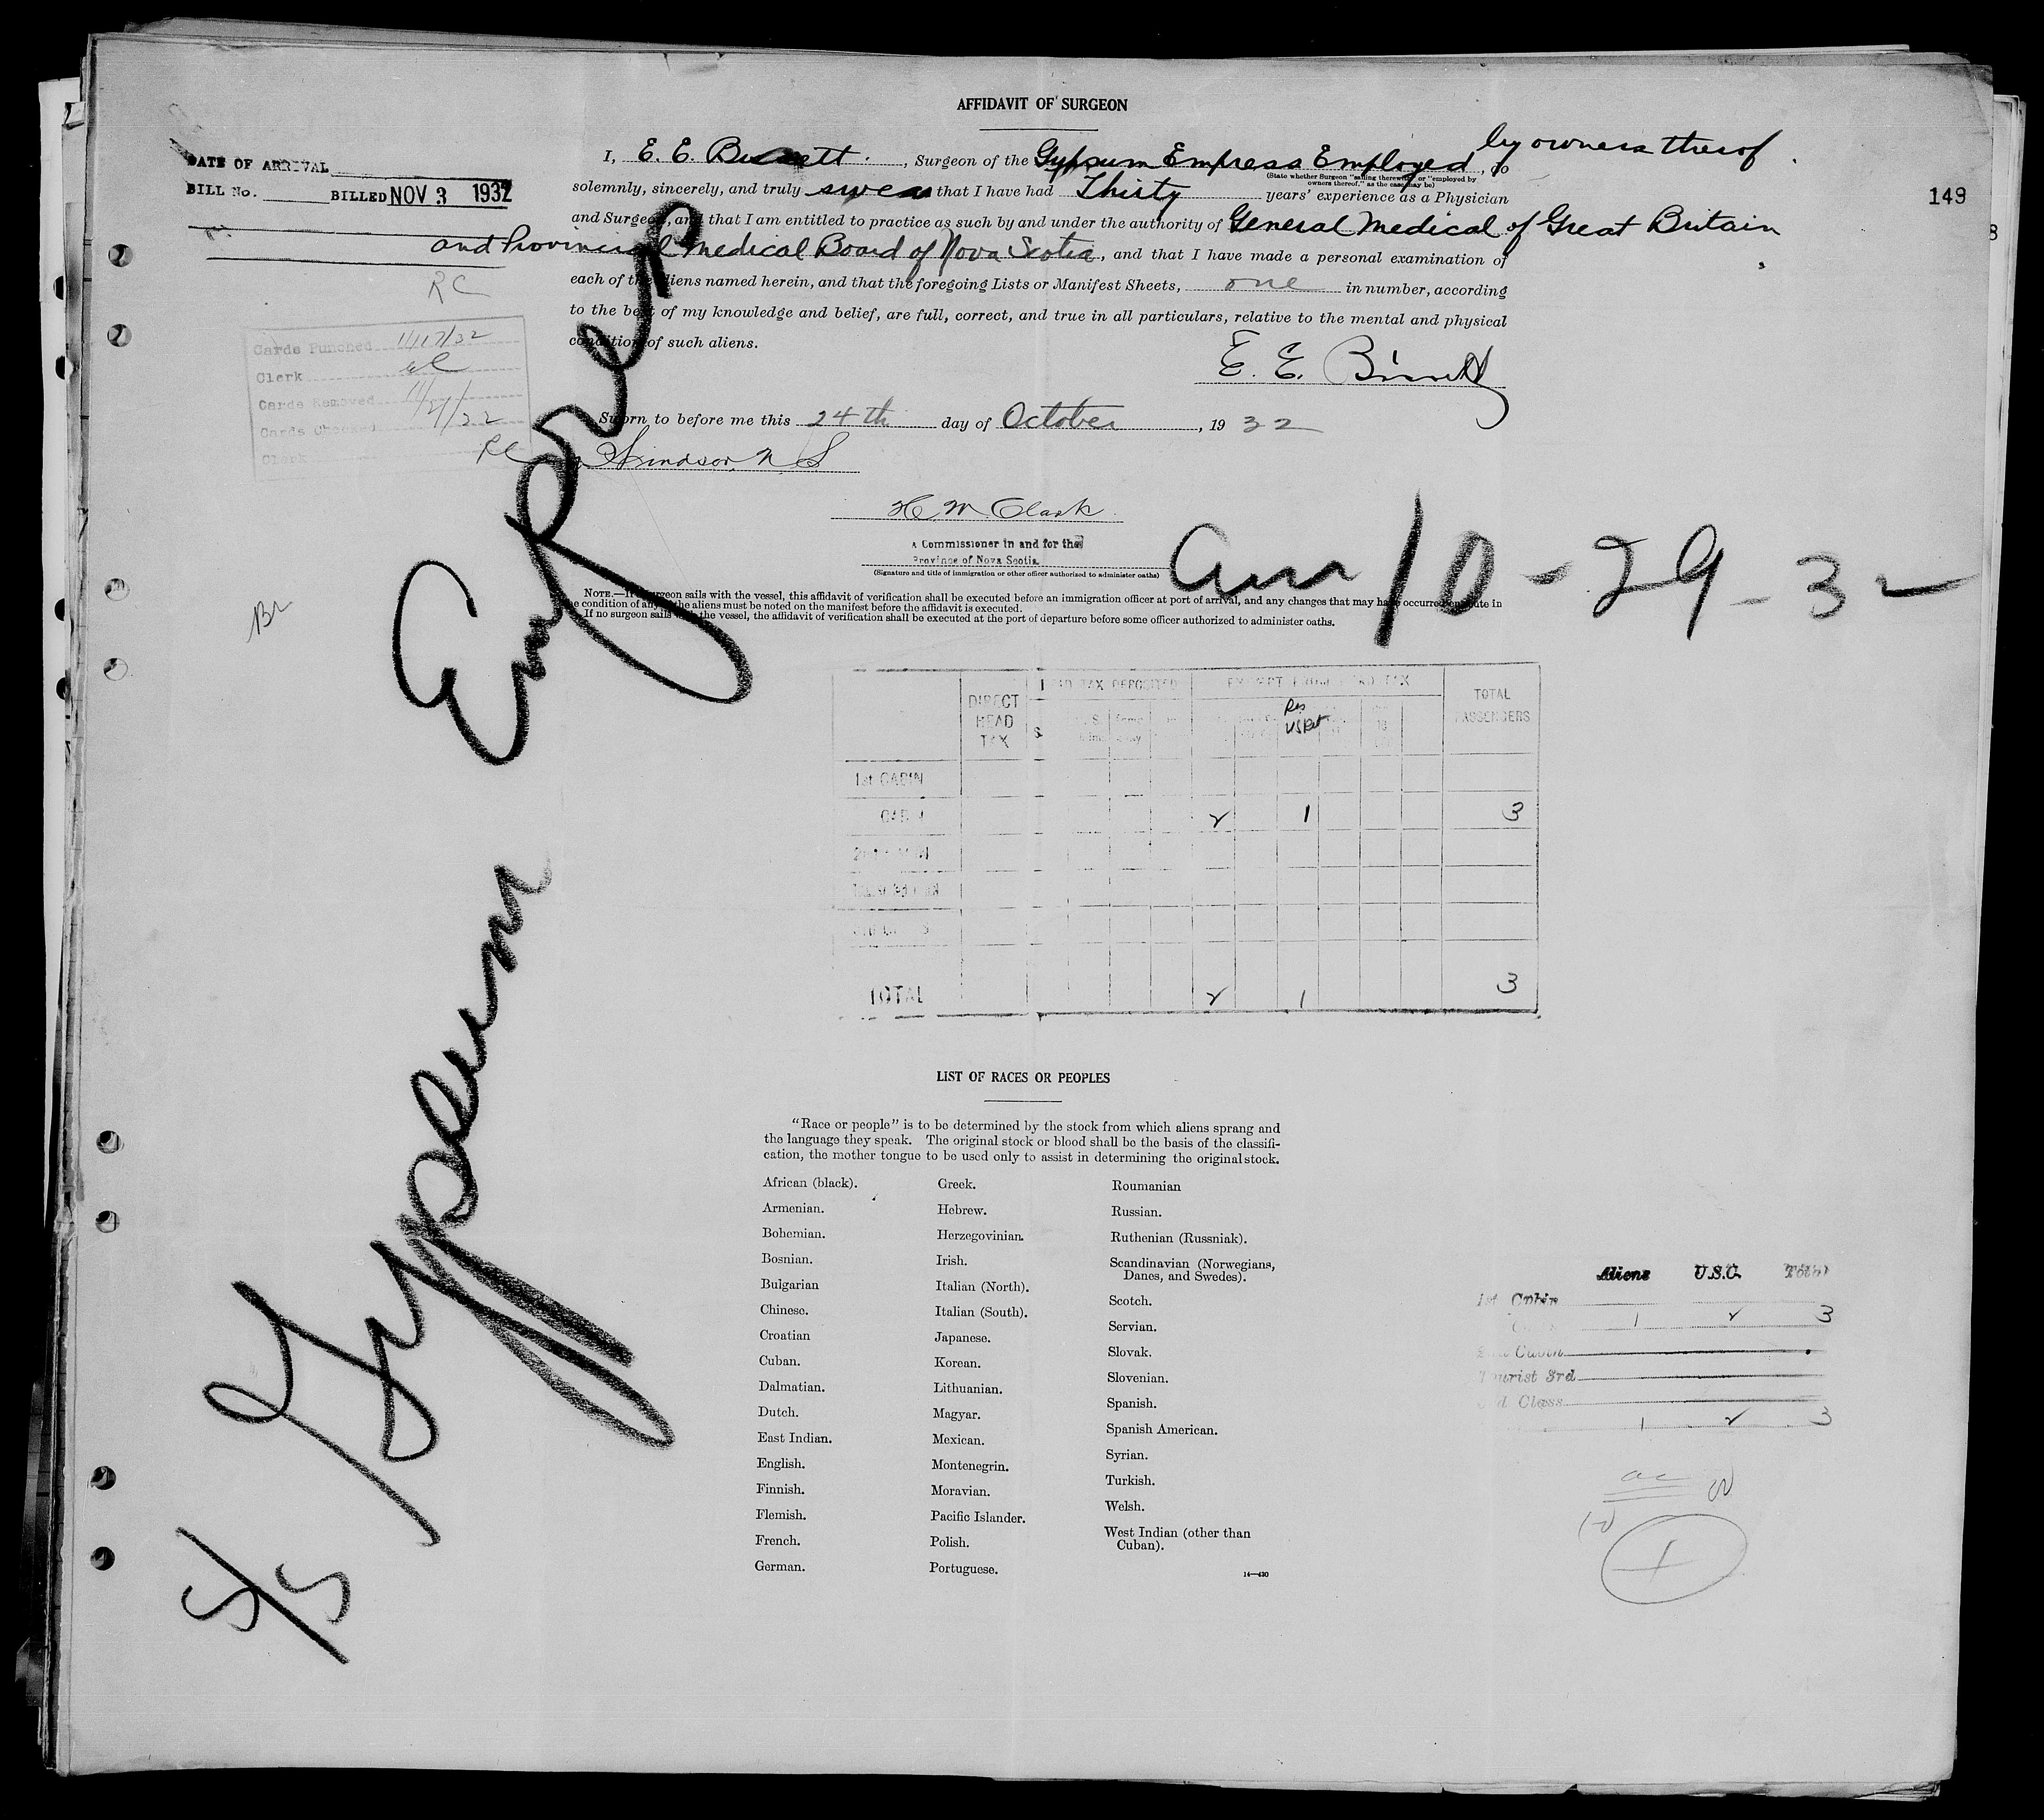 AFFIDAVIT OF SURGEON
DATE OF ARRIVAL
BILL No. BILLED NOV 3 1932
149
I, E. E. , Surgeon of the Gypsum Empress Employed by owners therof , do
(State whether Surgeon "sailing therewith" or "employed by
owners thereof," as the case may be)
solemnly, sincerely, and truly swear that I have had Thirty years' experience as a Physician
and Surgeon, and that I am entitled to practice as such by and under the authority of General Medical of Great Britain
and Provincial Medical Board of Nova Scotia, and that I have made a personal examination of
each of the aliens named herein, and that the foregoing Lists or Manifest Sheets, one in number, according
to the best of my knowledge and belief, are full, correct, and true in all particulars, relative to the mental and physical
condition of such aliens.
E. E.
RC
Cards Punched 11/17/32
Clerk
Cards Removed
Cards Checked
Clerk RC
Sworn to before me this 24th day of October, 1932
Windsor, N S
H. M. Clark
A Commissioner in and for the
Province of Nova Scotia
(Signature and title of immigration or other officer authorized to administer oaths)
arr 10-29-32
NOTE.—If a surgeon sails with the vessel, this affidavit of verification shall be executed before an immigration officer at port of arrival, and any changes that may have occurred en route in
the condition of any of the aliens must be noted on the manifest before the affidavit is executed.
If no surgeon sails with the vessel, the affidavit of verification shall be executed at the port of departure before some officer authorized to administer oaths.
S/S Gypsum Empress
DIRECT HEAD TAX HEAD TAX DEPOSITED EXEMPT FROM HEAD TAX TOTAL PASSENGERS
Res
US
1st CABIN
CABIN 2 1 3
TOTAL 2 1 3
LIST OF RACES OR PEOPLES
"Race or people" is to be determined by the stock from which aliens sprang and
the language they speak. The original stock or blood shall be the basis of the classifi-
cation, the mother tongue to be used only to assist in determining the original stock.
African (black).
Armenian.
Bohemian.
Bosnian.
Bulgarian
Chinese.
Croatian
Cuban.
Dalmatian.
Dutch.
East Indian.
English.
Finnish.
Flemish.
French.
German.
Greek.
Hebrew.
Herzegovinian.
Irish.
Italian (North).
Italian (South).
Japanese.
Korean.
Lithuanian.
Magyar.
Mexican.
Montenegrin.
Moravian.
Pacific Islander.
Polish.
Portuguese.
Roumanian
Russian.
Ruthenian (Russniak).
Scandinavian (Norwegians,
Danes, and Swedes).
Scotch.
Servian.
Slovak.
Slovenian.
Spanish.
Spanish American.
Syrian.
Turkish.
Welsh.
West Indian (other than
Cuban).
14—430
Aliens U.S.C. Total
1st Cabin
1 2 3
2nd Cabin
Tourist 3rd
3rd Class
1 2 3